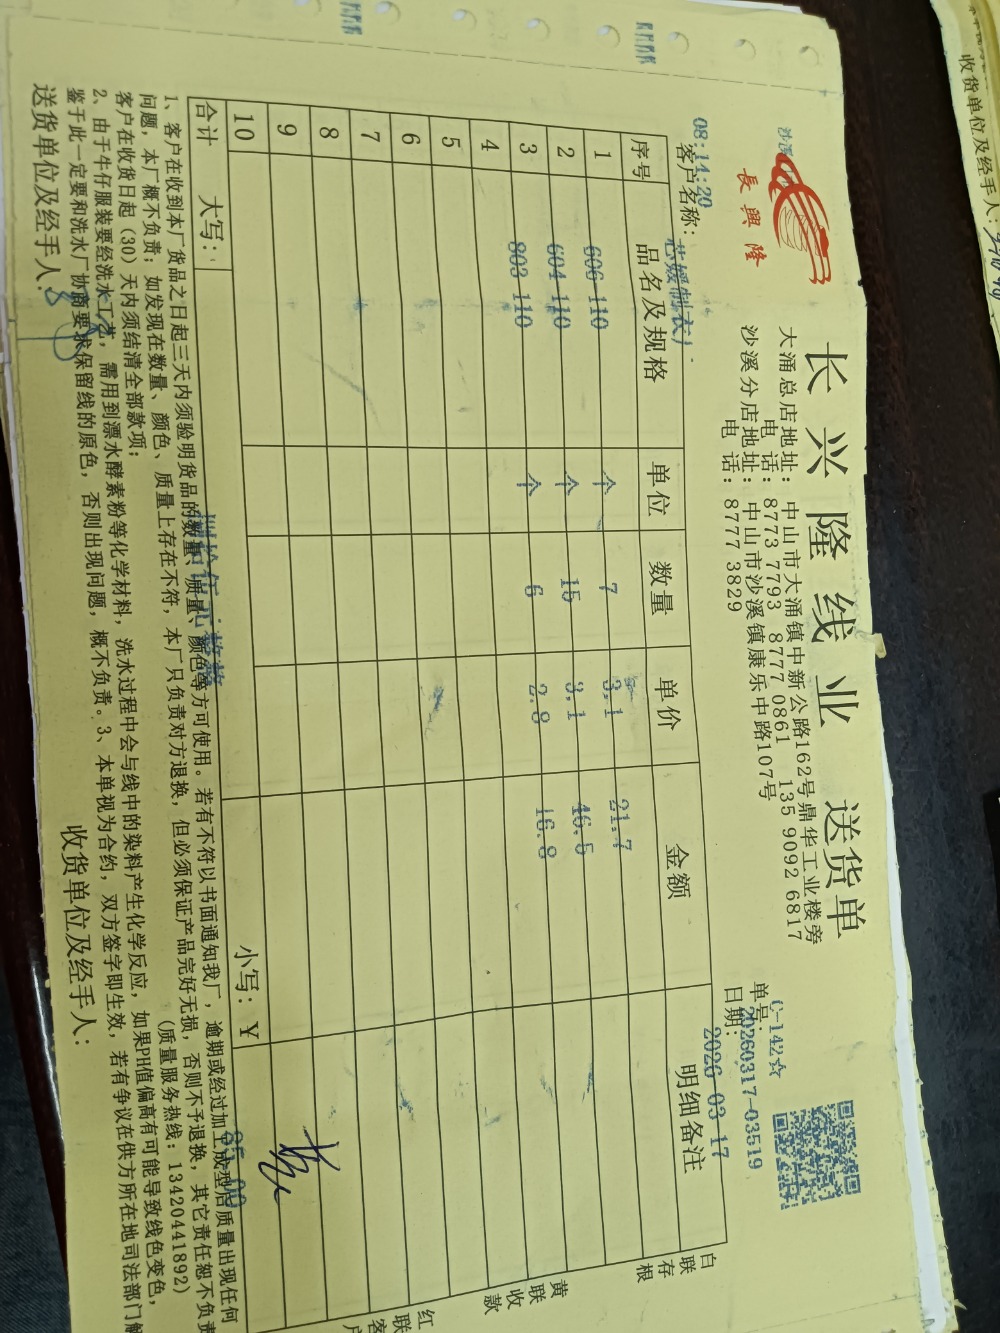 长兴隆线业 送货单
長興隆
大涌总店地址：中山市大涌镇中新公路162号鼎华工业楼旁
电 话：8773 7793 8777 0861 135 9092 6817
沙溪分店地址：中山市沙溪镇康乐中路107号
电 话：8777 3829
C-142☆
单号：20260317-03519
日期：2026-03-17
08:14:20
客户名称：芯媛制衣厂
序号 品名及规格 单位 数量 单价 金额 明细备注
1 606-110 个 7 3.1 21.7
2 604-110 个 15 3.1 46.5
3 803-110 个 6 2.8 16.8
4
5
6
7
8
9
10
合计 大写：捌拾伍元整 小写：￥ 85.00
白联存根
黄联收款
红联客户
1、客户在收到本厂货品之日起三天内须验明货品的数量、质量、颜色等方可使用。若有不符以书面通知我厂，逾期或经过加工成型后质量出现任何
问题，本厂概不负责；如发现在数量、颜色、质量上存在不符，本厂只负责对方退换，但必须保证产品完好无损，否则不予退换，其它责任恕不负责
客户在收货日起（30）天内须结清全部款项； （质量服务热线：13420441892）
2、由于牛仔服装要经洗水工艺，需用到漂水酵素粉等化学材料，洗水过程中会与线中的染料产生化学反应，如果PH值偏高有可能导致线色变色，
鉴于此一定要和洗水厂协商要求保留线的原色，否则出现问题，概不负责。3、本单视为合约，双方签字即生效，若有争议在供方所在地司法部门解
送货单位及经手人： 收货单位及经手人：
收货单位及经手人：